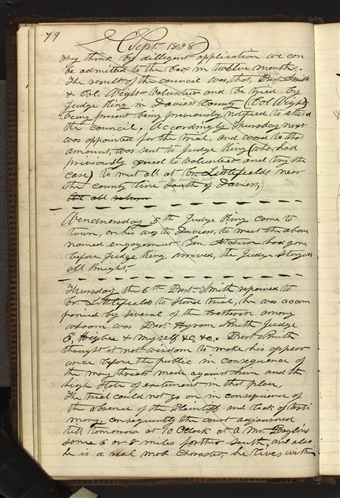 79
(Sept 1838)
They think by dilligent application we can
be admitted to the bar in twelve months.
The result of the council was that, Prest Smith
& Col. Wight volunteer and be tried by
Judge King in Daviess County (Col Wight)
being present being previously notified to attend
the council, Accordingly Thursday next
was appointed for the trial, and word to that
amount, was sent to Judge King (who had
previously agreed to volunteer and try the
case) to met all at br. Littlefields near
the county line south of Daviess,
Wendnesday 5th Judge King came to
town, on his way to Daviess, to met the above
named engagement Gen Atchison had gone
before Judge King arrived, the Judge stayed
all knight.
Thursday the 6th Prest. Smith repaired to
br. Littlefields to stand trial, he was accom
panied by several of the brethren among
whoom was Prest. Hyrom Smith Judge
E, Higbee & myself &c. &c. Prest. Smith
thought it not wisdom to make his appear
ance before the public in consequence of
the many threats made against him and the
high State of exitement in that place.
The trial could not go on in consequence of
the absence of the Plaintiff, and lack of testi
mony consequently the court adjourned
till tomorrow at 10 Oclock at a Mr. Raglins
some 6 or 8 miles farther South, and also
he is a real mob Character, he lives within